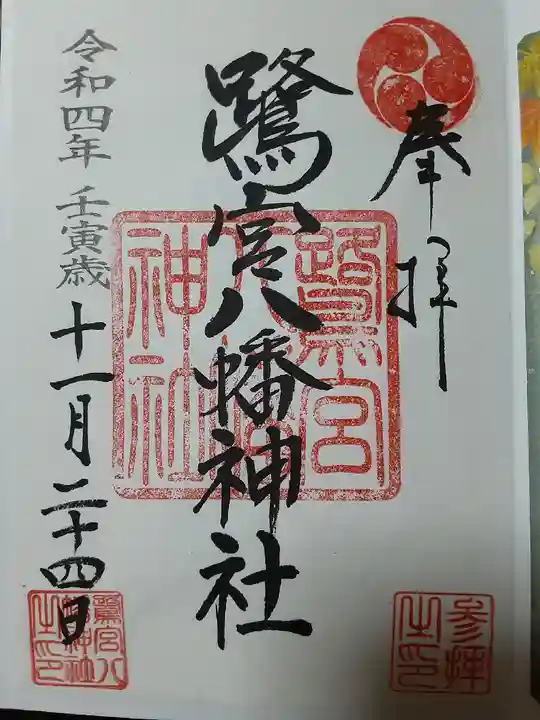 奉拝
鷺宮八幡神社
令和四年 壬寅歳
十一月二十四日
鷺宮
八幡
神社
参拝
之印
鷺宮八
幡神社
之印